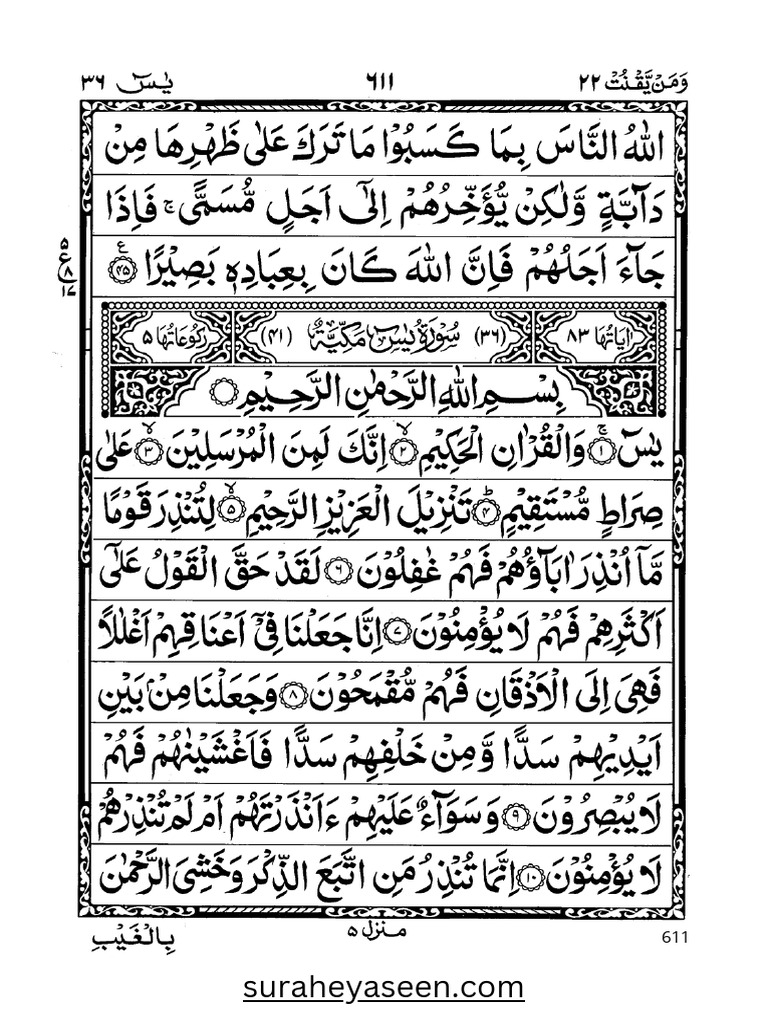 وَمَنۡ يَّقۡنُتۡ ٢٢
٦١١
يٰسٓ ٣٦
اللّٰهُ النَّاسَ بِمَا كَسَبُوۡا مَا تَرَكَ عَلٰى ظَهۡرِهَا مِنۡ
دَآبَّةٍ وَّلٰكِنۡ يُّؤَخِّرُهُمۡ اِلٰٓى اَجَلٍ مُّسَمًّىۚ فَاِذَا
جَآءَ اَجَلُهُمۡ فَاِنَّ اللّٰهَ كَانَ بِعِبَادِهٖ بَصِيۡرًا ﴿٤٥﴾
٥
ع
٨
١٧
اٰيَاتُهَا ٨٣
(٣٦) سُوۡرَةُ يٰسٓ مَكِّيَّةٌ (٤١)
رُكُوۡعَاتُهَا ٥
بِسۡمِ اللّٰهِ الرَّحۡمٰنِ الرَّحِيۡمِ
يٰسٓ ۚ﴿١﴾ وَالۡقُرۡاٰنِ الۡحَكِيۡمِ ۙ﴿٢﴾ اِنَّكَ لَمِنَ الۡمُرۡسَلِيۡنَ ۙ﴿٣﴾ عَلٰى
صِرَاطٍ مُّسۡتَقِيۡمٍ ؕ﴿٤﴾ تَنۡزِيۡلَ الۡعَزِيۡزِ الرَّحِيۡمِ ۙ﴿٥﴾ لِتُنۡذِرَ قَوۡمًا
مَّاۤ اُنۡذِرَ اٰبَآؤُهُمۡ فَهُمۡ غٰفِلُوۡنَ ﴿٦﴾ لَقَدۡ حَقَّ الۡقَوۡلُ عَلٰٓى
اَكۡثَرِهِمۡ فَهُمۡ لَا يُؤۡمِنُوۡنَ ﴿٧﴾ اِنَّا جَعَلۡنَا فِىۡۤ اَعۡنَاقِهِمۡ اَغۡلٰلًا
فَهِىَ اِلَى الۡاَذۡقَانِ فَهُمۡ مُّقۡمَحُوۡنَ ﴿٨﴾ وَجَعَلۡنَا مِنۡۢ بَيۡنِ
اَيۡدِيۡهِمۡ سَدًّا وَّمِنۡ خَلۡفِهِمۡ سَدًّا فَاَغۡشَيۡنٰهُمۡ فَهُمۡ
لَا يُبۡصِرُوۡنَ ﴿٩﴾ وَسَوَآءٌ عَلَيۡهِمۡ ءَاَنۡذَرۡتَهُمۡ اَمۡ لَمۡ تُنۡذِرۡهُمۡ
لَا يُؤۡمِنُوۡنَ ﴿١٠﴾ اِنَّمَا تُنۡذِرُ مَنِ اتَّبَعَ الذِّكۡرَ وَخَشِىَ الرَّحۡمٰنَ
611
منزل ٥
بِالۡغَيۡبِ
suraheyaseen.com